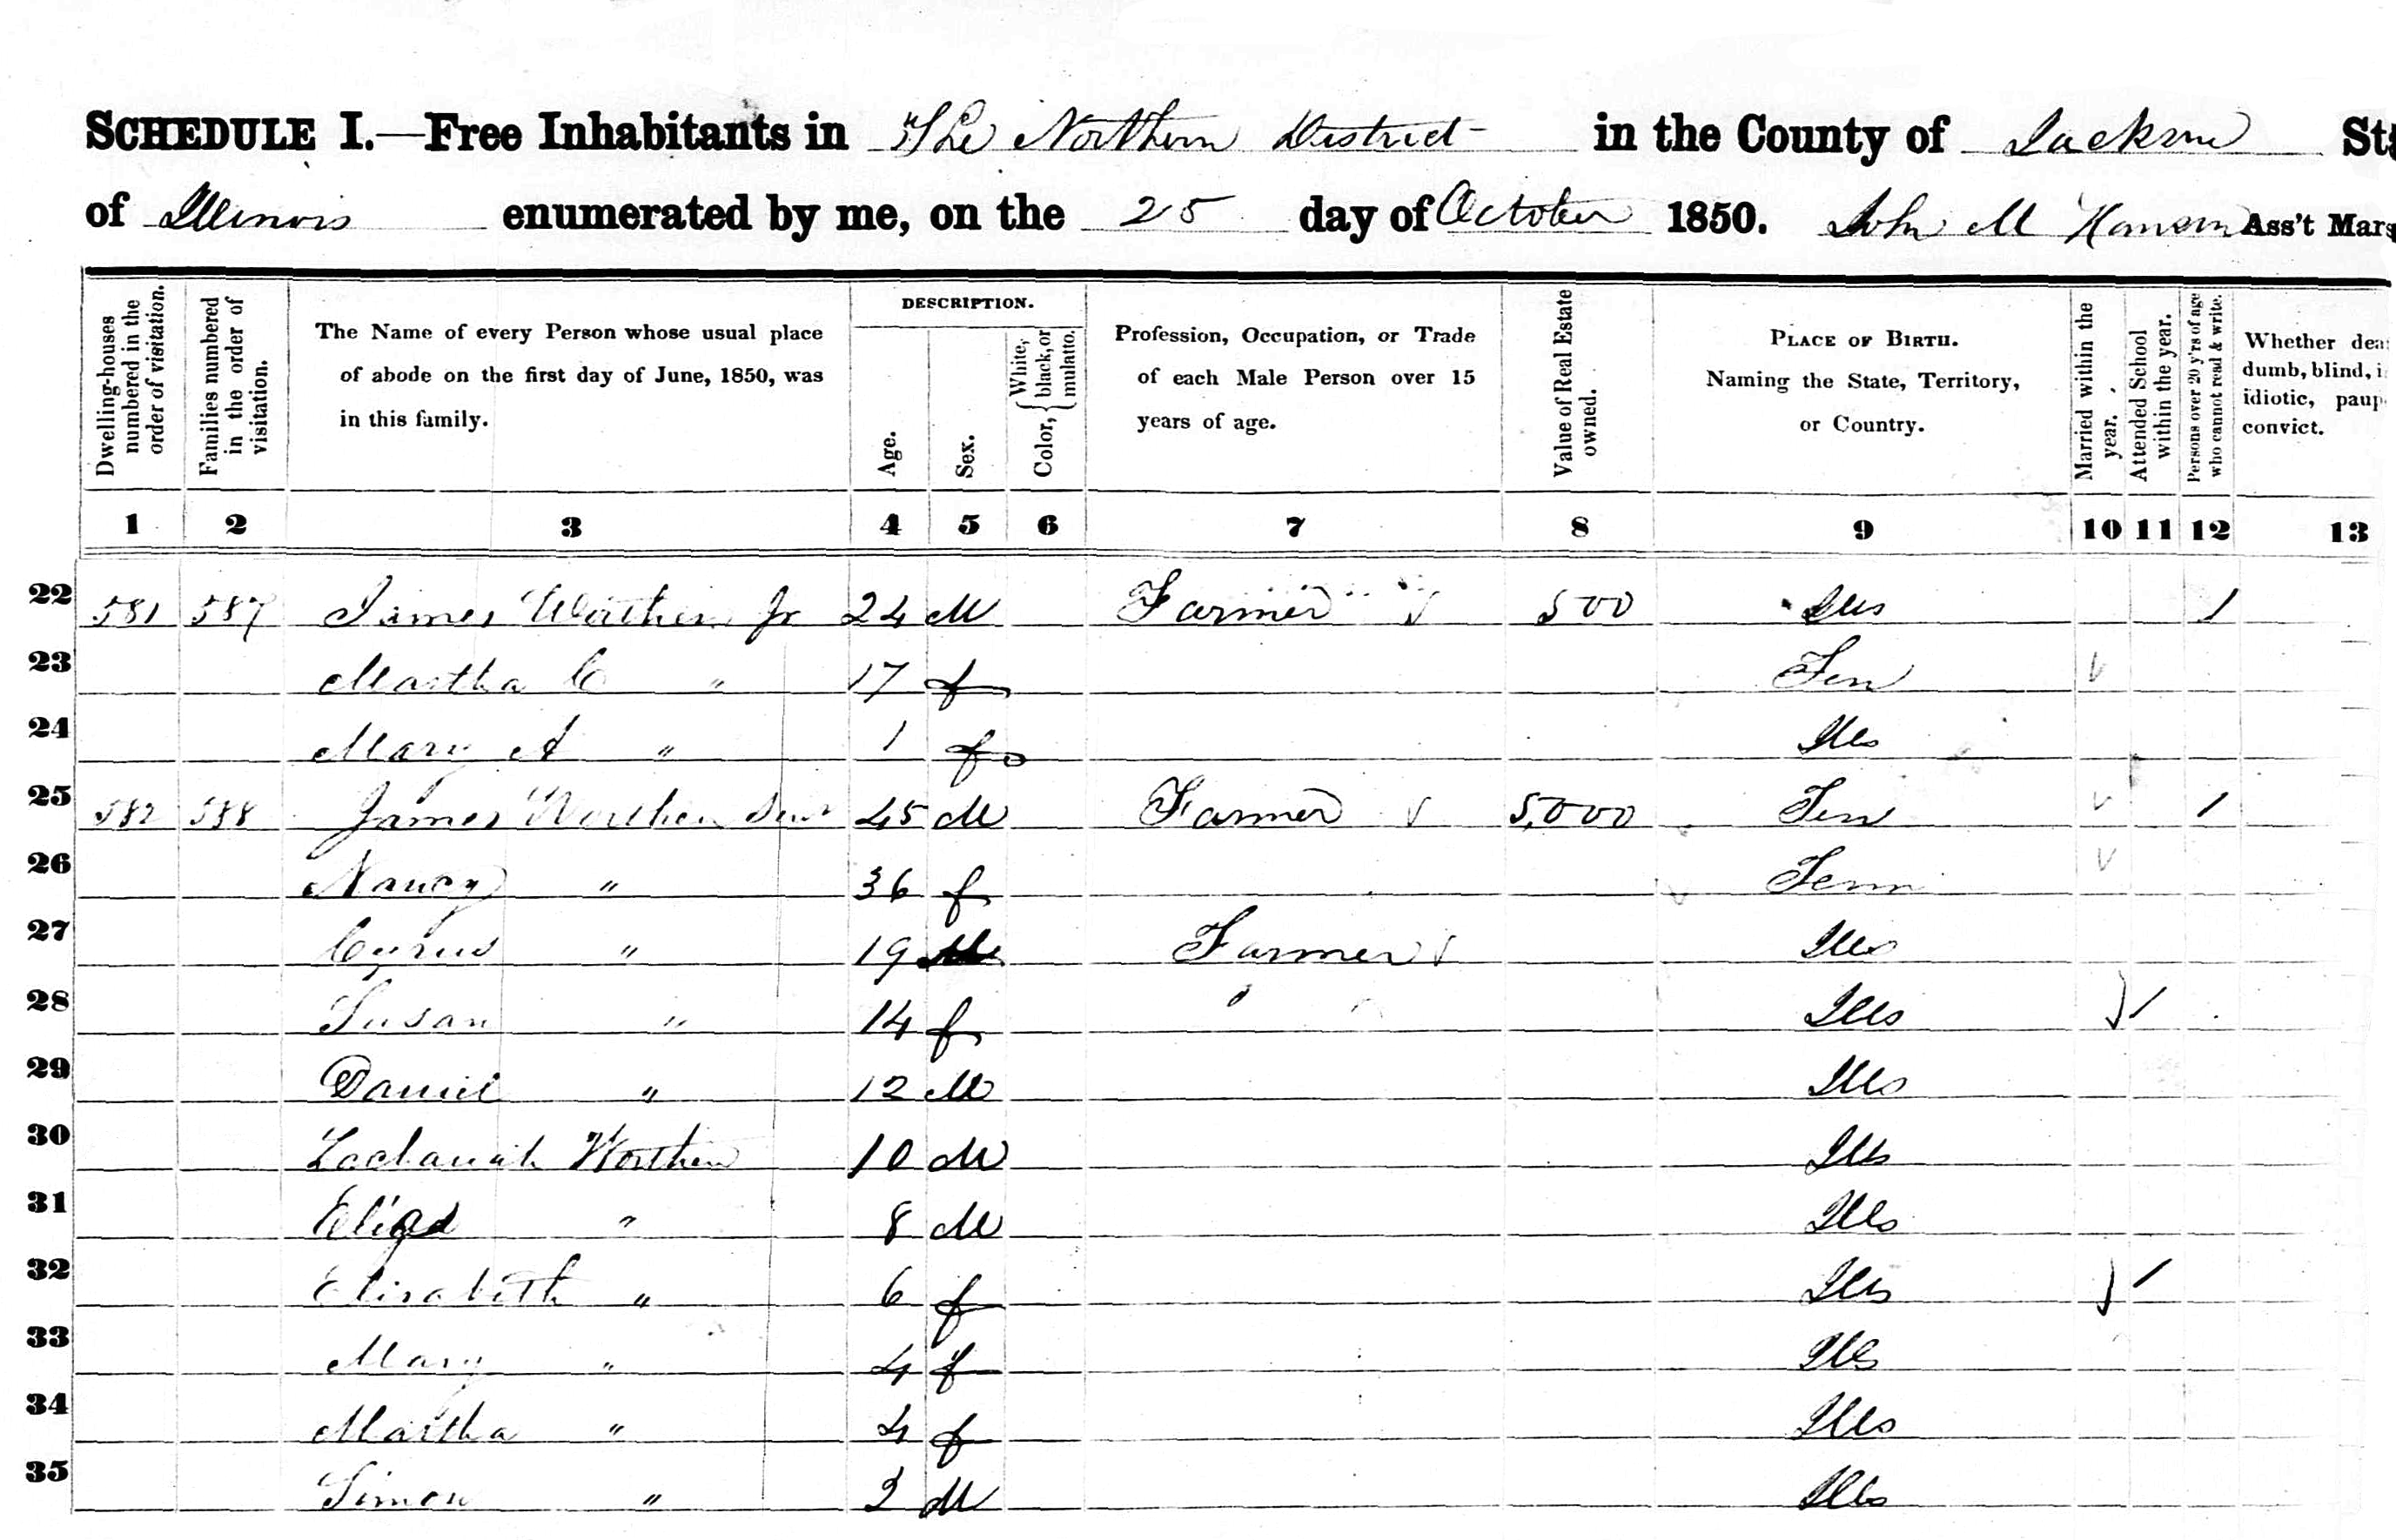 SCHEDULE I.—Free Inhabitants in The Northern District in the County of Jackson
of Illinois enumerated by me, on the 25 day of October 1850. John M Ass't
Dwelling-houses numbered in the order of visitation.
Families numbered in the order of visitation.
The Name of every Person whose usual place of abode on the first day of June, 1850, was in this family.
DESCRIPTION.
Age.
Sex.
Color, { White, black, or mulatto.
Profession, Occupation, or Trade of each Male Person over 15 years of age.
Value of Real Estate owned.
PLACE OF BIRTH. Naming the State, Territory, or Country.
Married within the year.
Attended School within the year.
Persons over 20 y'rs of age who cannot read & write.
Whether dumb, blind, idiotic, convict.
1 2 3 4 5 6 7 8 9 10 11 12 13
22 581 587 James Worthen Jr 24 M Farmer 500 Ills 1
23 Martha C " 17 f Ten
24 Mary A " 1 f Ills
25 582 588 James Worthen Senr 45 M Farmer 5,000 Ten 1
26 Nancy " 36 f Tenn
27 Cyrus " 19 M Farmer Ills
28 Susan " 14 f Ills 1
29 Daniel " 12 M Ills
30 Worthen 10 M Ills
31 " 8 M Ills
32 Elizabeth " 6 f Ills 1
33 Mary " 4 f Ills
34 Martha " 4 f Ills
35 Simon " 2 M Ills